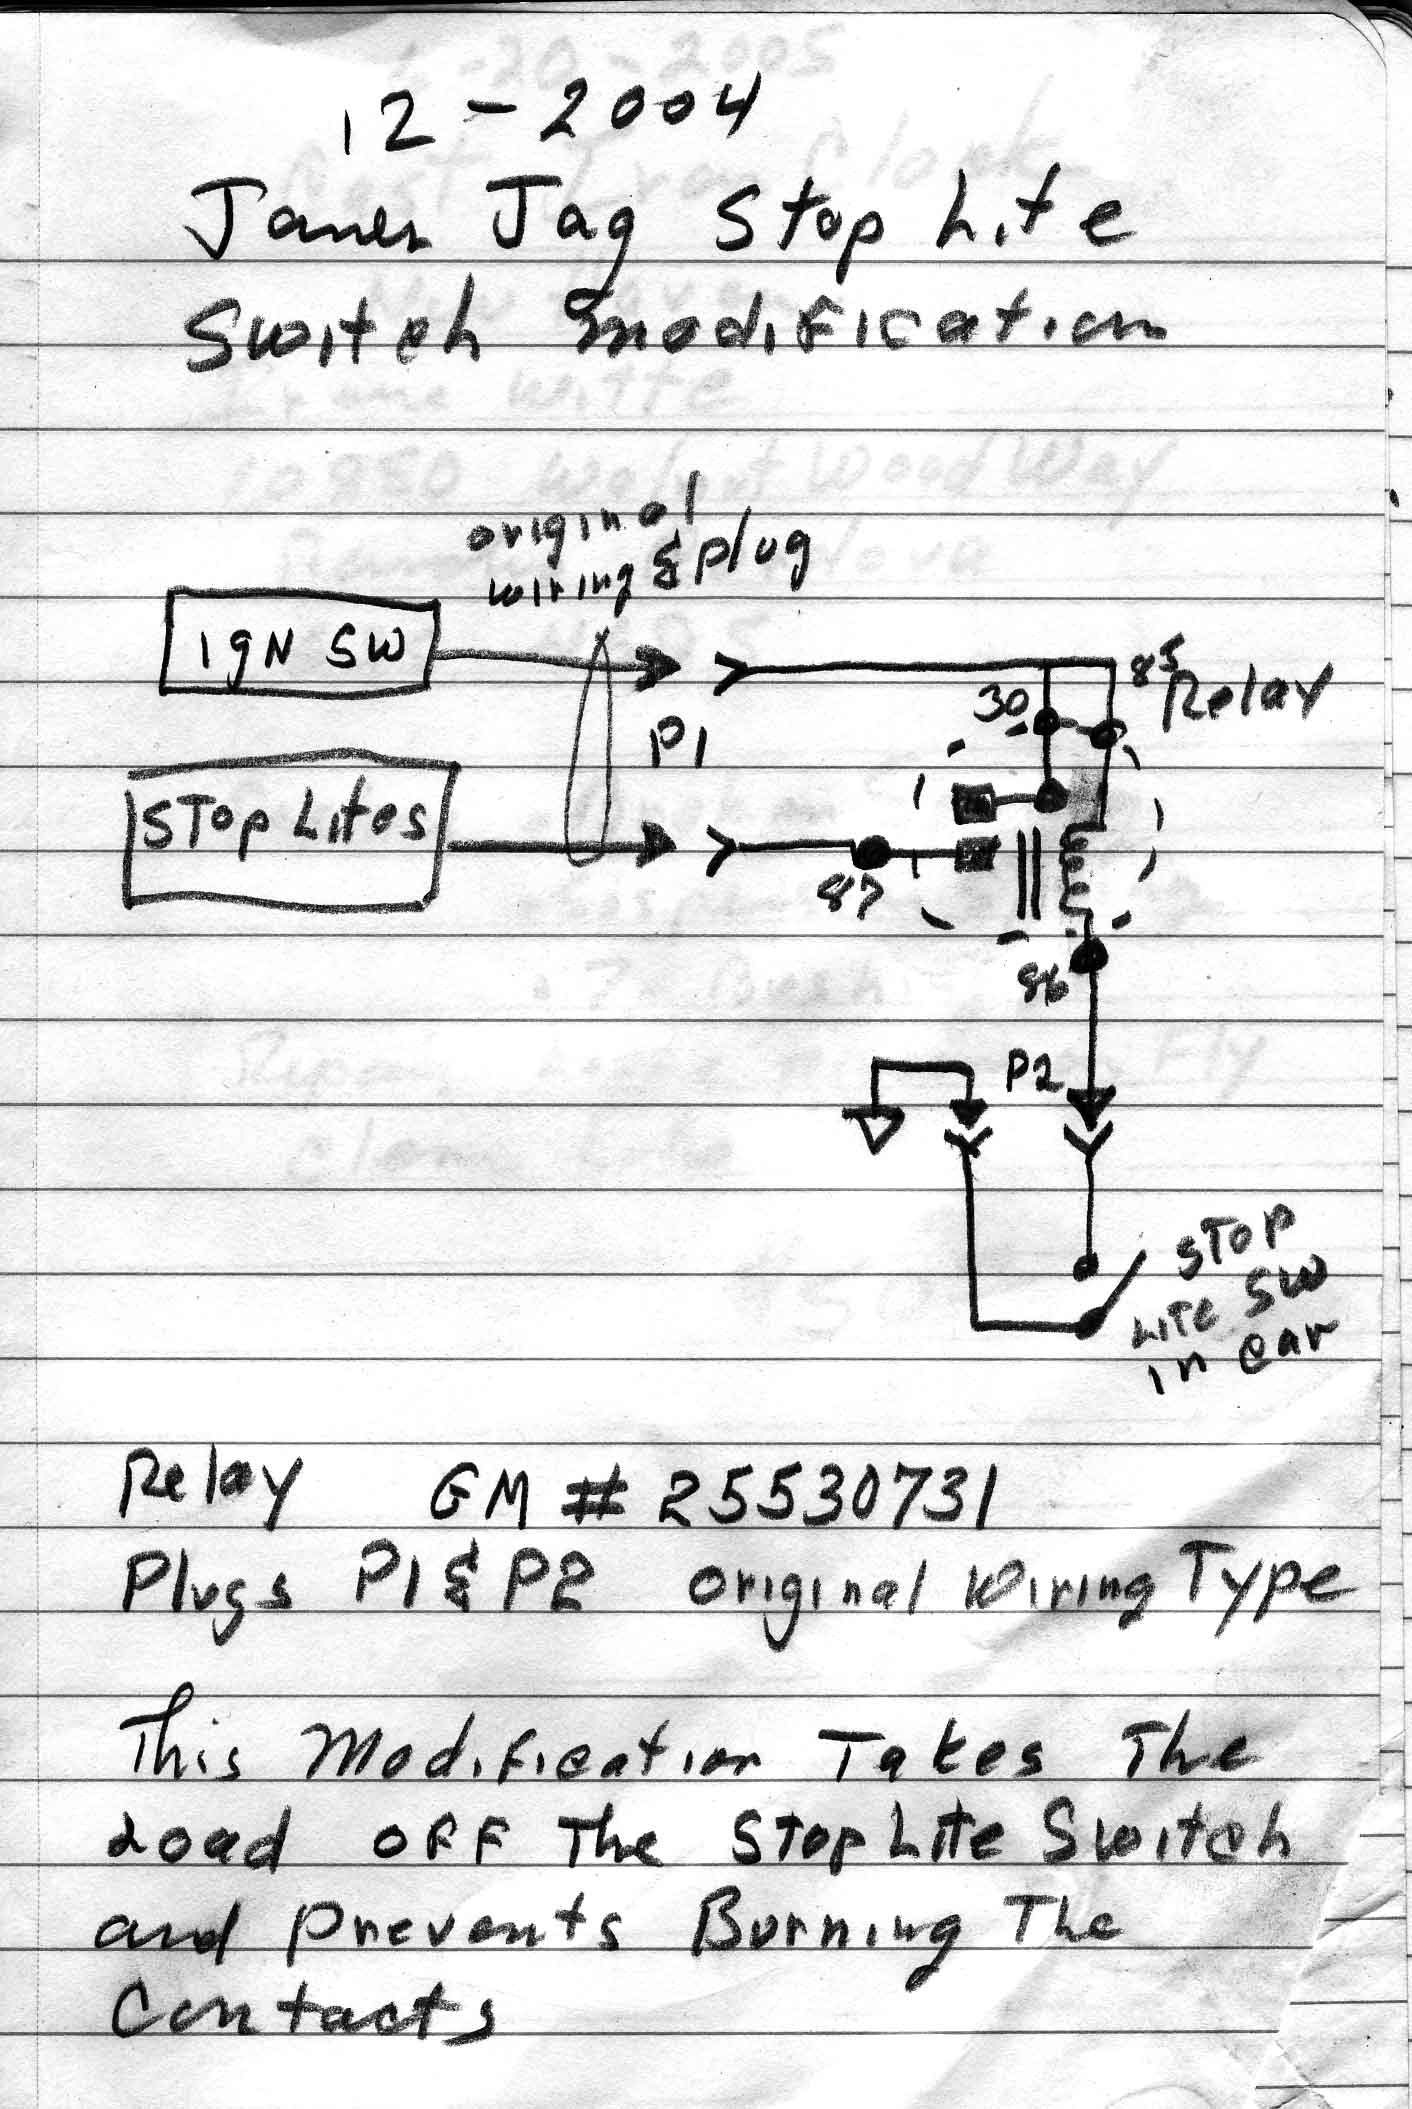 12-2004
Janes Jag Stop Lite
Switch modification
original
wiring & plug
IgN SW
85
30
Relay
P1
Stop Lites
87
86
P2
Stop
Lite SW
in car
Relay GM # 25530731
Plugs P1 & P2 original Wiring Type
This Modification Takes The
Load OFF The Stop Lite Switch
and Prevents Burning The
Contacts